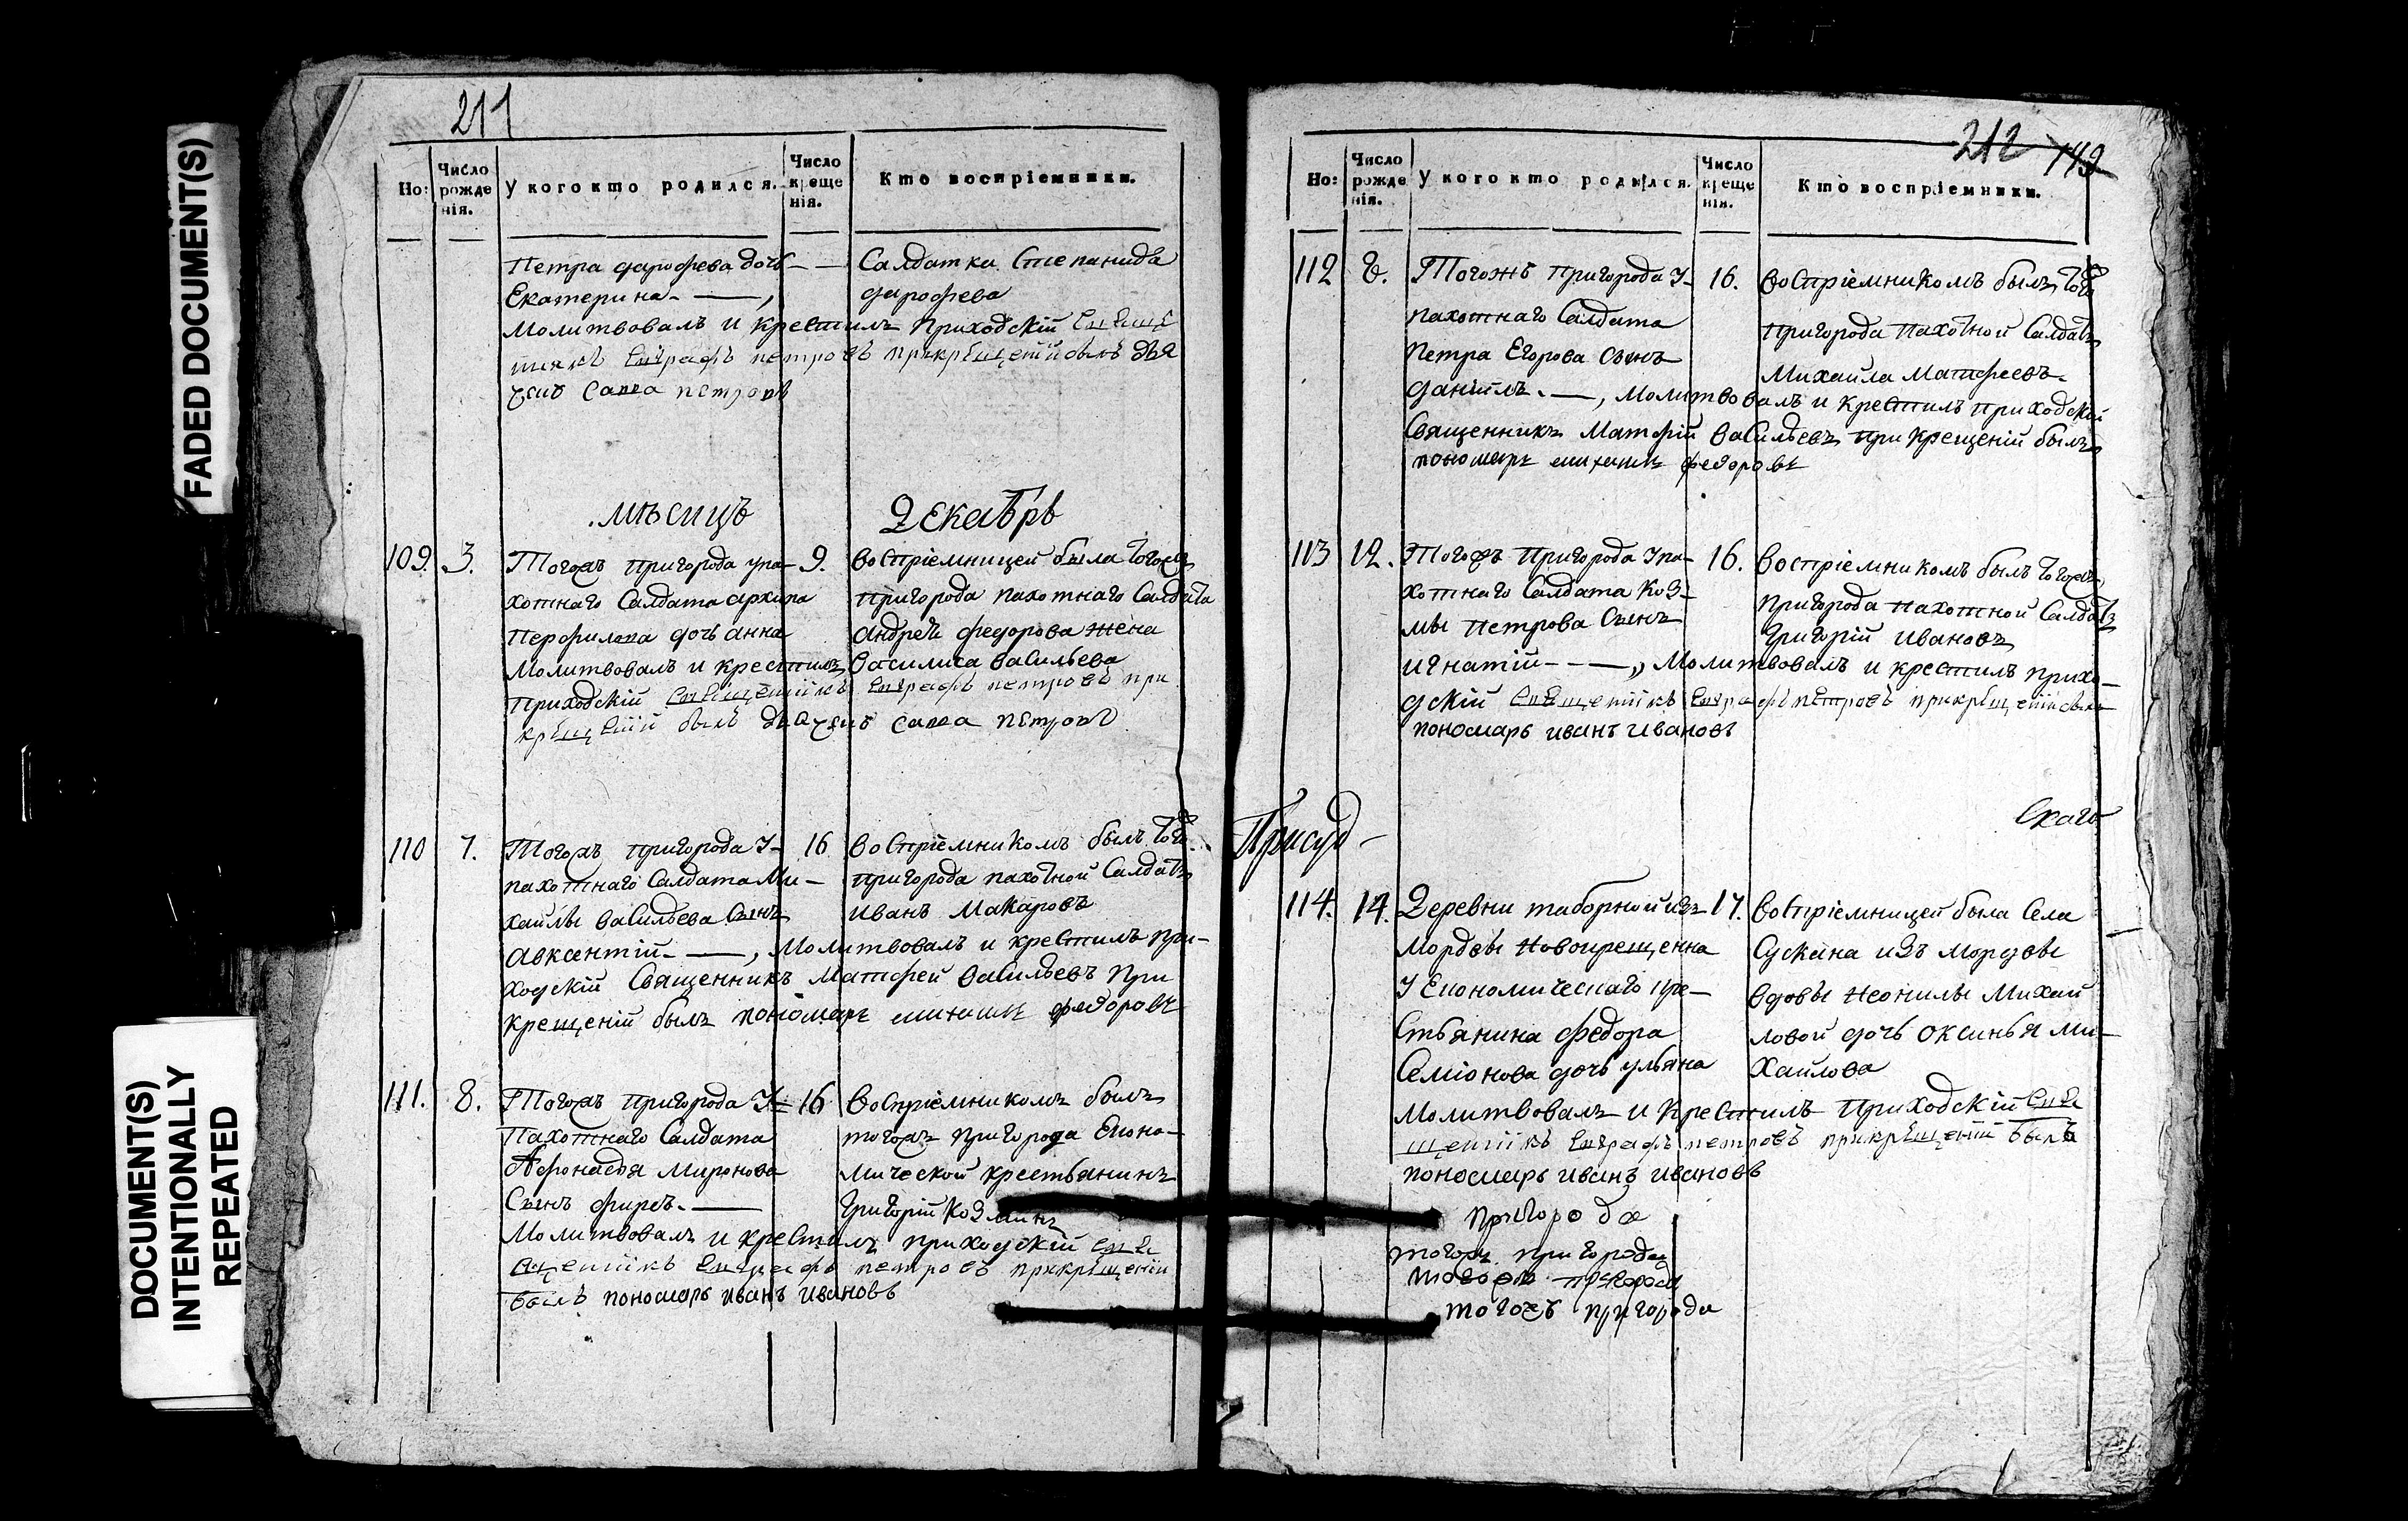 FADED DOCUMENT(S)
DOCUMENT(S)
INTENTIONALLY
REPEATED
211
Но:
Число
рожде
нія.
У кого кто родился.
Число
креще
нія.
Кто воспріемники.
Петра дарофева дочь
Екатерина
Салдатка Степанида
дарофева
Молитвовалъ и крестилъ Приходскій Свяще
нникъ Евграфъ петровъ прикрещеніи былъ дья
чекъ Савва петровъ
мѣсицъ Декабрь
109. 3. Тогожъ пригорода упа- 9. Воспріемницей была тогожъ
хотнаго Салдата архипа пригорода пахотнаго Салдата
Перфилова дочь анна андрея федорова жена
Молитвовалъ и крестилъ Василиса васильева
Приходскій Священникъ Евграфъ петровъ при
крещеніи былъ дьячекъ Савва петровъ
110 7. Тогожъ пригорода У- 16 Воспріемникомъ былъ тогожъ
пахотнаго Салдата Ми- пригорода пахотной Салдатъ
хайлы васильева Сынъ иванъ Макаровъ
авксентій, Молитвовалъ и крестилъ при-
ходскій Священникъ Матфей васильевъ при
крещеніи былъ пономарь федоровъ
111. 8. Тогожъ пригорода У= 16 Воспріемникомъ былъ
Пахотнаго Салдата тогожъ пригорода Еконо-
Афонасья Миронова мической крестьянинъ
Сынъ фирсъ. Григорій Козминъ
Молитвовалъ и крестилъ приходскій Свя
щенникъ Евграфъ петровъ прикрещеніи
былъ пономарь иванъ ивановъ
212 149
Но:
Число
рожде
нія.
У кого кто родился.
Число
креще
нія.
Кто воспріемники.
112 8. Тогожъ пригорода У- 16. Воспріемникомъ былъ тогожъ
пахотнаго Салдата пригорода пахотной Салдатъ
Петра Егорова Сынъ Михаила Матфеевъ.
даніилъ., Молитвовалъ и крестилъ приходскій
Священникъ Матфій васильевъ при крещеніи былъ
пономарь федоровъ
113 12. Тогожъ пригорода Упа- 16. Воспріемникомъ былъ тогожъ
хотнаго Салдата Коз- пригорода пахотной Салдатъ
мы Петрова Сынъ Григорій ивановъ
игнатій, Молитвовалъ и крестилъ прихо-
дскій Священникъ Евграфъ петровъ прикрещеніи былъ
пономарь иванъ ивановъ
Присуд- Скаго
114. 14. Деревни таборной изъ 17. Воспріемницей была Села
Мордвы новокрещенна Сускана изъ мордвы
У Економическаго кре- вдовы неонилы Михай
Стьянина федора ловой дочь оксинья Ми-
Семіонова дочь ульяна хайлова
Молитвовалъ и Крестилъ Приходскій Свя
щенникъ Евграфъ петровъ прикрещеніи былъ
пономарь иванъ ивановъ
пригорода
тогожъ пригорода
тогожъ пригорода
тогожъ пригорода